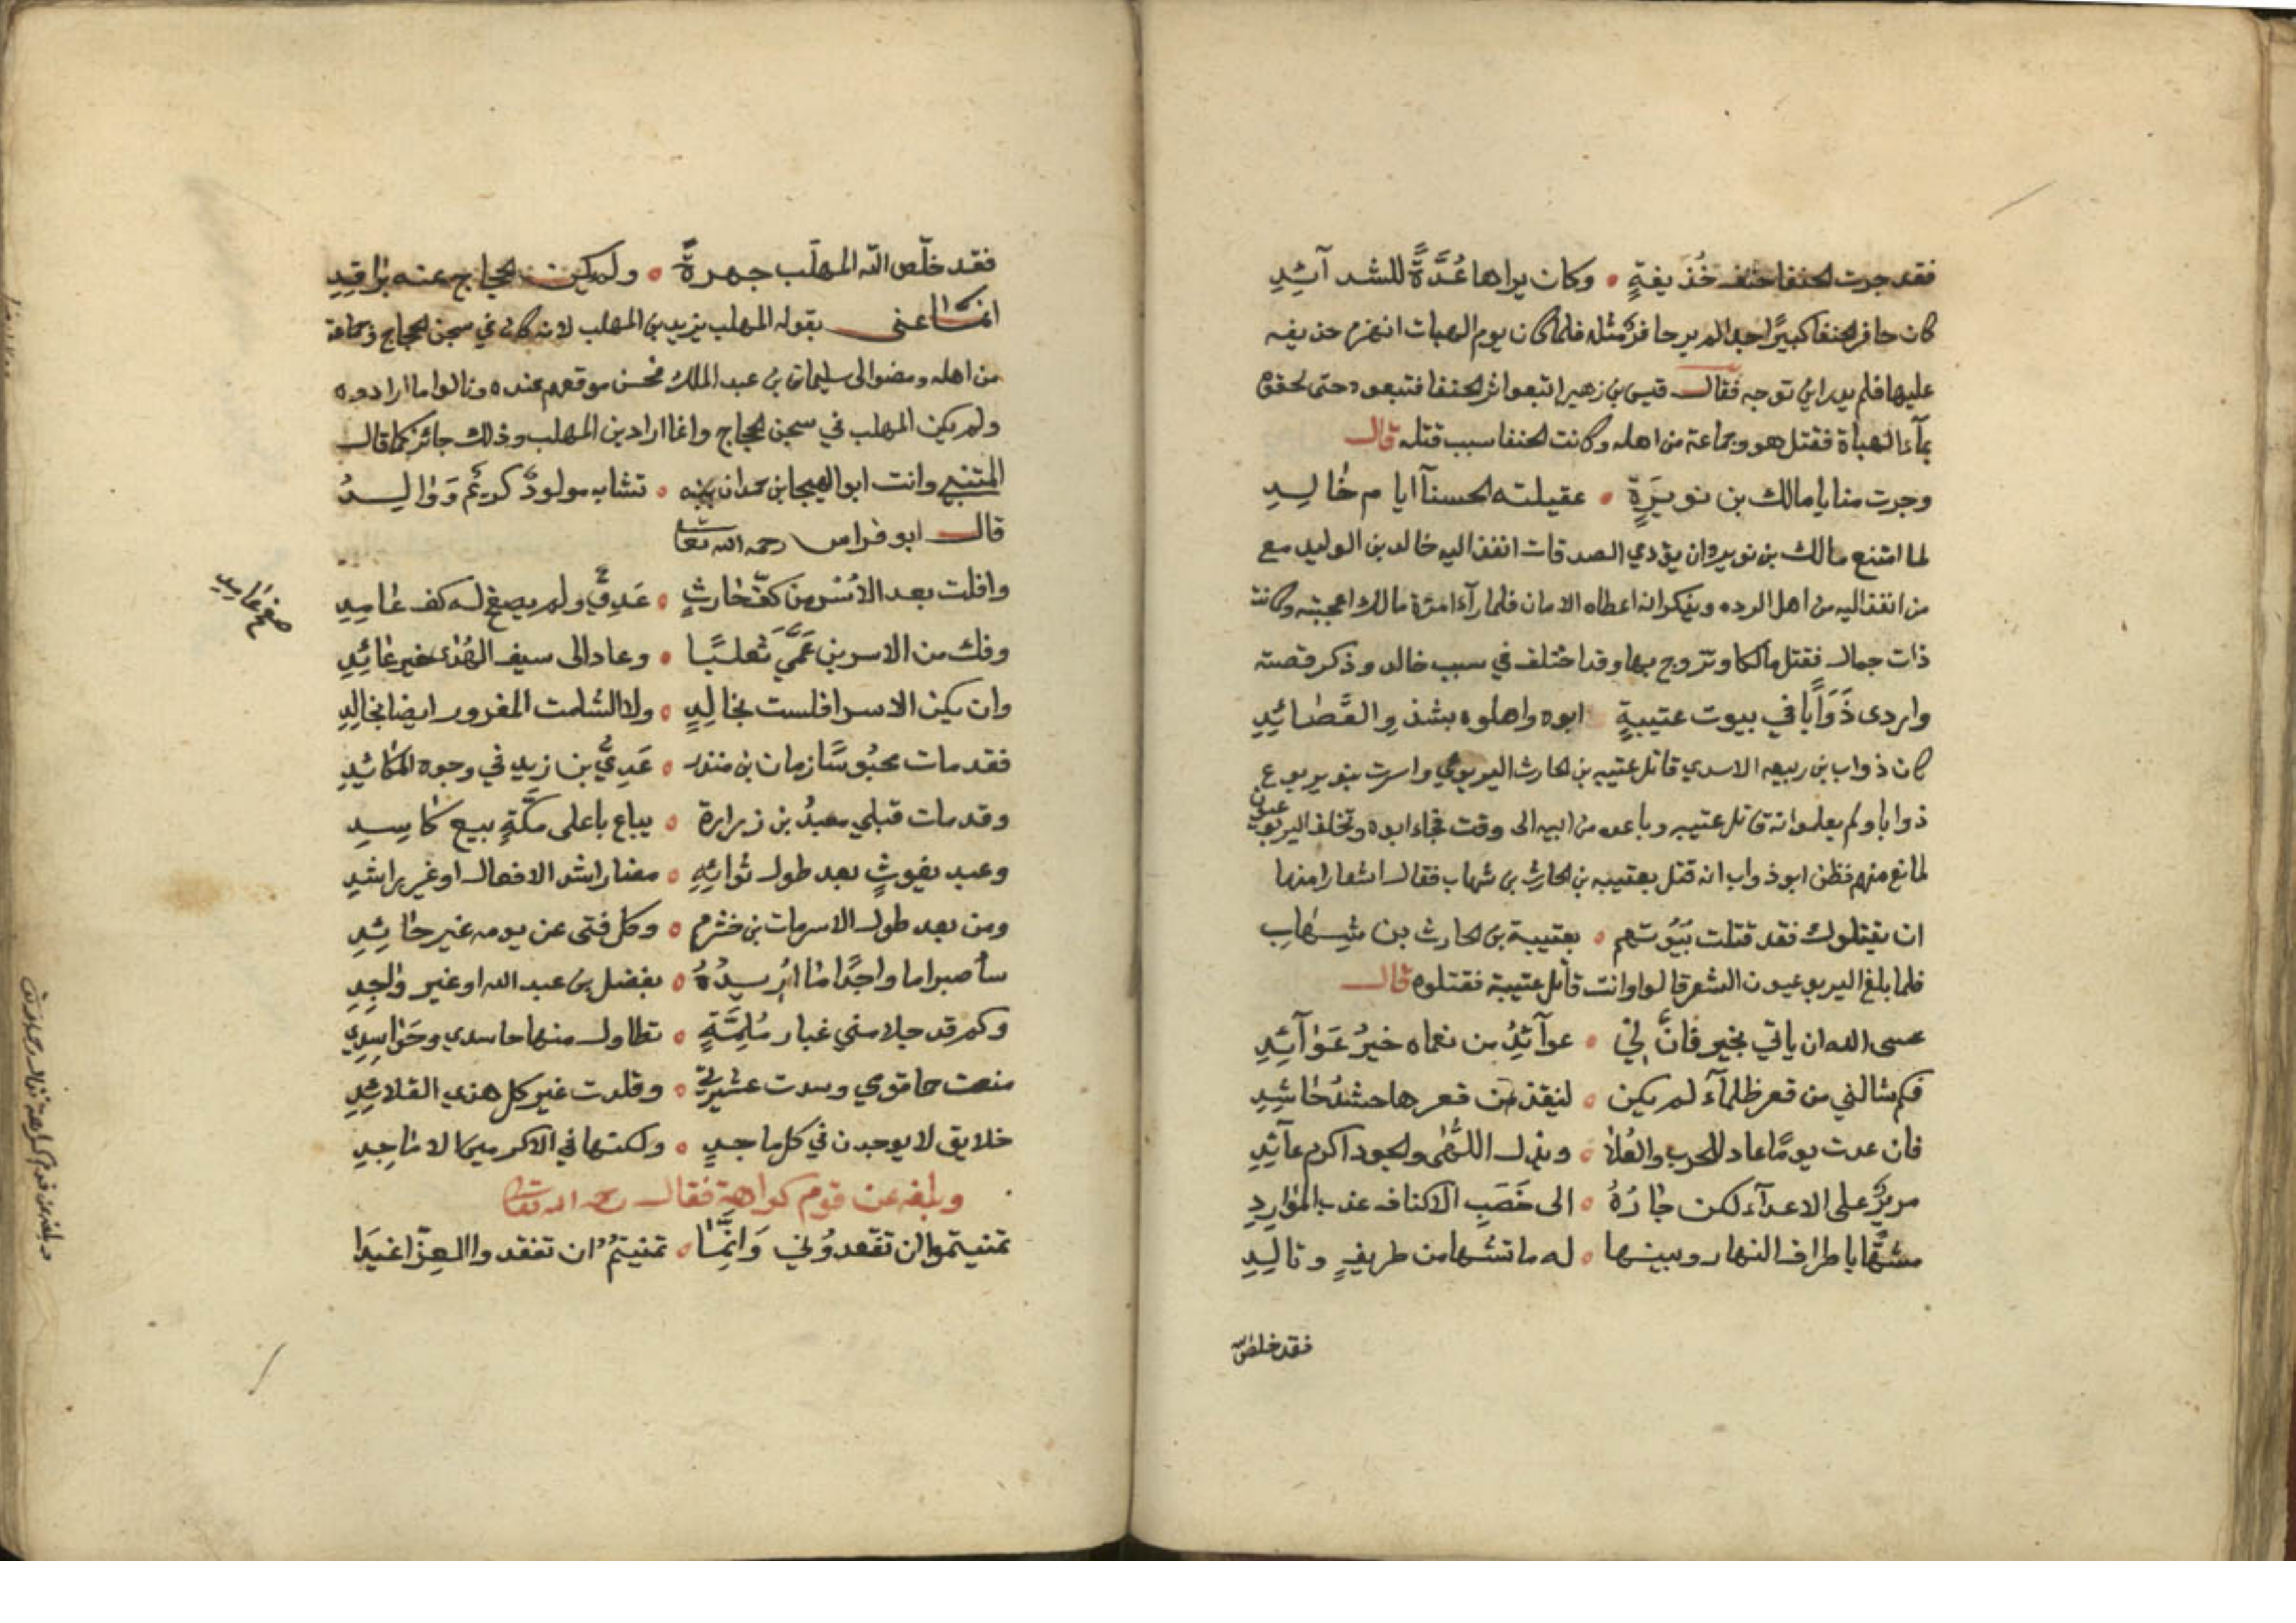 فقد جرت الحنفا حتف حُذيفةٍ ۰ وكان يراها عُدَّةً للشد آئِدِ
كان حافر الحنفا كبيرًا جدا لم ير حافر مثله فلما كان يوم الهبات انهزم حذيفه
عليها فلم يدر اين توجه فقال قيس بن زهير اتبعوا اثر الحنفا فتبعوه حتى لحقوه
بمآء الهباة فقتل هو وجماعة من اهله وكانت الحنفا سبب قتله قال
وجرت منايا مالك بن نويرَةٍ ۰ عقيلته الحسنآ ايام خٰالِدِ
لما امتنع مالك بن نويره ان يؤدي الصدقات انفذ اليه خالد بن الوليد مع
من انفذ اليه من اهل الرده ويذكر انه اعطاه الامان فلما رآء امرَة مالك اعجبته وكانت
ذات جمال فقتل مالكا وتزوج بها وقد اختلف في سبب خالد وذكر قصته
واردى ذَوَابًا في بيوت عتيبةٍ ابوه واهلوه بشذوِ القَصٰائِدِ
كان ذواب بن ربيعه الاسدي قاتل عتيبه بن الحارث اليربوعي واسرت بنو يربوع
ذوابا ولم يعلموا انه قاتل عتيبه وباعده من ابيه الى وقت فجاء ابوه وتخلف اليربوعيون
لمانع منهم فظن ابو ذواب انه قتل بعتيبه بن الحارث بن شهاب فقال اشعارا منها
ان يقتلوك فقد قتلت بُيُوتهم ۰ بعتيبة بن الحارث بن شِهٰابِ
فلما بلغ اليربوعيون الشعر قالوا وانت قاتل عتيبة فقتلوه قال
عسى الله ان ياتي بخير فانَّ لِي ۰ عوآئِدُ من نعماه خيرُ عَوٰآئِدِ
فكم شالني من قعر ظلمآءَ لم يكن ۰ لينقذ من قعرها حشدُ حٰاشِدِ
فان عدت يومًا عاد للحرب والعُلاٰ ۰ وبذل اللُّهٰى والجود اكرم عآئِدِ
مريرٌ على الاعدآء لكن جٰارُهُ ۰ الى خَصَبِ الاكناف عذب المٰوارِدِ
مشهًّا باطراف النهار وبينها ۰ له ما تشهّا من طريفٍ وتالِدِ
فقد خلص
فقد خلّص الله المهلّب جهرةً ۰ ولم يكن الحجاج عنه برٰاقِدِ
انما عنى بقوله المهلب يزيد بن المهلب لانه كان في سجن الحجاج وجماعة
من اهله ومضوا الى سليمان بن عبد الملك فحسن موقعهم عنده ونالوا ما ارادوه
ولم يكن المهلب في سجن الحجاج وانما اراد بن المهلب وذلك جائز كما قال
المتنبي وانت ابو الهيجا بن حمدان يا بنه ۰ تشابه مولودٌ كريمٌ وَوٰالِدُ
قال ابو فراس رحمه الله تعا
وافلت بعد الاسْر من كفّ حٰارثٍ ۰ عَدِيٌّ ولم يصغ له كف عٰامِدِ
وفك من الاسرين عَمَّيَ ثعلبًا ۰ وعاد الى سيف الهُدٰى خير عٰائِدِ
وان يكن الاسرا فلست بخالِدٍ ۰ ولا الشامت المغرور ايضا بخالِدِ
فقد مات محبُوسًا زمان بن منذر ۰ عَدِيُّ بن زيد في وجوه المكٰائِدِ
وقد مات قبلي معبدُ بن زرارة ۰ يباع باعلى مكّةٍ بيع كٰاسِدِ
وعبد يغوثٍ بعد طول ثوائِهِ ۰ مضا راشد الافعال او غير راشدِ
ومن بعد طول الاسر مات بن خشرمٍ ۰ وكل فتى عن يومه غير حٰائِدِ
سأصبر اما واجدًا مٰا اُرِيدُهُ ۰ بفضل بن عبد الله او غير واجِدِ
وكم قد جلا مني غبار مُلِمَّةٍ ۰ تطاول منها حاسدي وحَوٰاسِدِي
منعت حما قومي وسدت عشيرتي ۰ وقلدت غير كل هذي القلائِدِ
خلايق لا يوجدن في كل ماجدٍ ۰ ولكنها في الاكرمين الامٰاجِدِ
وبلغه عن قوم كراهة فقال رحمه الله تعا
تمنيتموا ان تفقدُوني وَانِّمٰا ۰ تمنيتُم ان تفقدوا العِزّ اغيَدَا